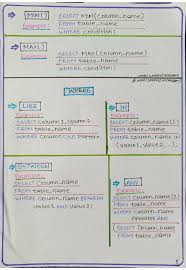 MIN()
Example:
SELECT MIN(column_name)
FROM table_name
WHERE condition;
MAX()
Example:
SELECT MAX(column_name)
FROM table_name
WHERE condition;
WHERE
LIKE
Example:
SELECT column1, column2
FROM table_name
WHERE column LIKE pattern
IN
Example:
SELECT column_name(s)
FROM table_name
WHERE column_name IN
(value1, value2, ...);
BETWEEN
Example:
SELECT column_name
FROM table_name
WHERE column_name BETWEEN
value1 AND value2;
ANY
Example:
SELECT column_name(s)
FROM table_name
WHERE column_name
OPERATOR ANY
(SELECT column_name
FROM table_name